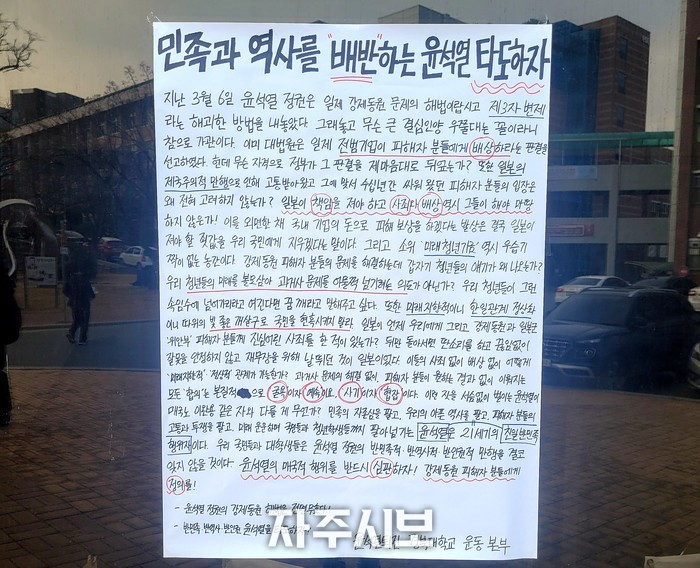 민족과 역사를 "배반"하는 윤석열 타도하자
지난 3월 6일 윤석열 정권은 일제 강제동원 문제의 해법이랍시고 제3자 변제
라는 해괴한 방법을 내놓았다. 그래놓고 무슨 큰 결심인양 우쭐대는 꼴이라니
참으로 가관이다. 이미 대법원은 일제 전범기업이 피해자 분들에게 배상하라는 판결을
선고하였다. 헌데 무슨 자격으로 정부가 그 판결을 제마음대로 뒤엎는가? 또한 일본의
제국주의적 만행으로 인해 고통받아왔고 그에 맞서 수십년간 싸워 왔던 피해자 분들의 입장은
왜 전혀 고려하지 않는가? 일본이 책임을 져야 하고 사죄와 배상 역시 그들이 해야 마땅
하지 않은가! 이를 외면한 채 국내 기업의 돈으로 피해 보상을 하겠다는 발상은 결국 일본이
져야 할 죗값을 우리 국민에게 지우겠다는 말이다. 그리고 소위 '미래청년기금' 역시 우습기
짝이 없는 농간이다. 강제동원 피해자 분들의 문제를 해결하는데 갑자기 청년들의 얘기가 왜 나오는가?
우리 청년들의 미래를 볼모삼아 과거사 문제를 어물쩍 넘기려는 의도가 아닌가? 우리 청년들이 그런
속임수에 넘어가리라고 여긴다면 꿈 깨라고 말해주고 싶다. 또한 미래지향적이니 한일관계 정상화
이니 따위의 빛 좋은 개살구로 국민을 현혹시키지 말라. 일본이 언제 우리에게 그리고 강제동원과 일본군
'위안부' 피해자 분들께 진심어린 사죄를 한 적이 있는가? 뒤만 돌아서면 딴소리를 하고 끊임없이
잘못을 인정하지 않고 재무장을 위해 날뛰던 것이 일본이었다. 이들의 사죄 없이 배상 없이 어떻게
'미래지향적' '정상적' 관계가 가능한가? 과거사 문제의 해결 없이, 피해자 분들이 원하는 결과 없이 이뤄지는
모든 '합의'는 본질적으로 굴욕이자 예속이요, 사기이자 협잡이다. 이런 작을 서슴없이 벌이는 윤석열이
매국노 이완용 같은 자와 다를 게 무언가? 민족의 자존심을 팔고, 우리의 아픈 역사를 팔고, 피해자 분들의
고통과 투쟁을 팔고, 미래 운운하며 국민들과 청년학생들까지 팔아넘기는 윤석열은 21세기의 친일 반민족
행위자이다. 우리 국민들과 대학생들은 윤석열 정권의 반민족적 반역사적 반인권적 만행을 결코
잊지 않을 것이다. 윤석열의 매국적 행위를 반드시 심판하자! 강제동원 피해자들에게
정의를!
- 윤석열 정권의 강제동원 해법
- 반민족 반역사 반인권 윤석열을
대학교 운동 본부
자주시보